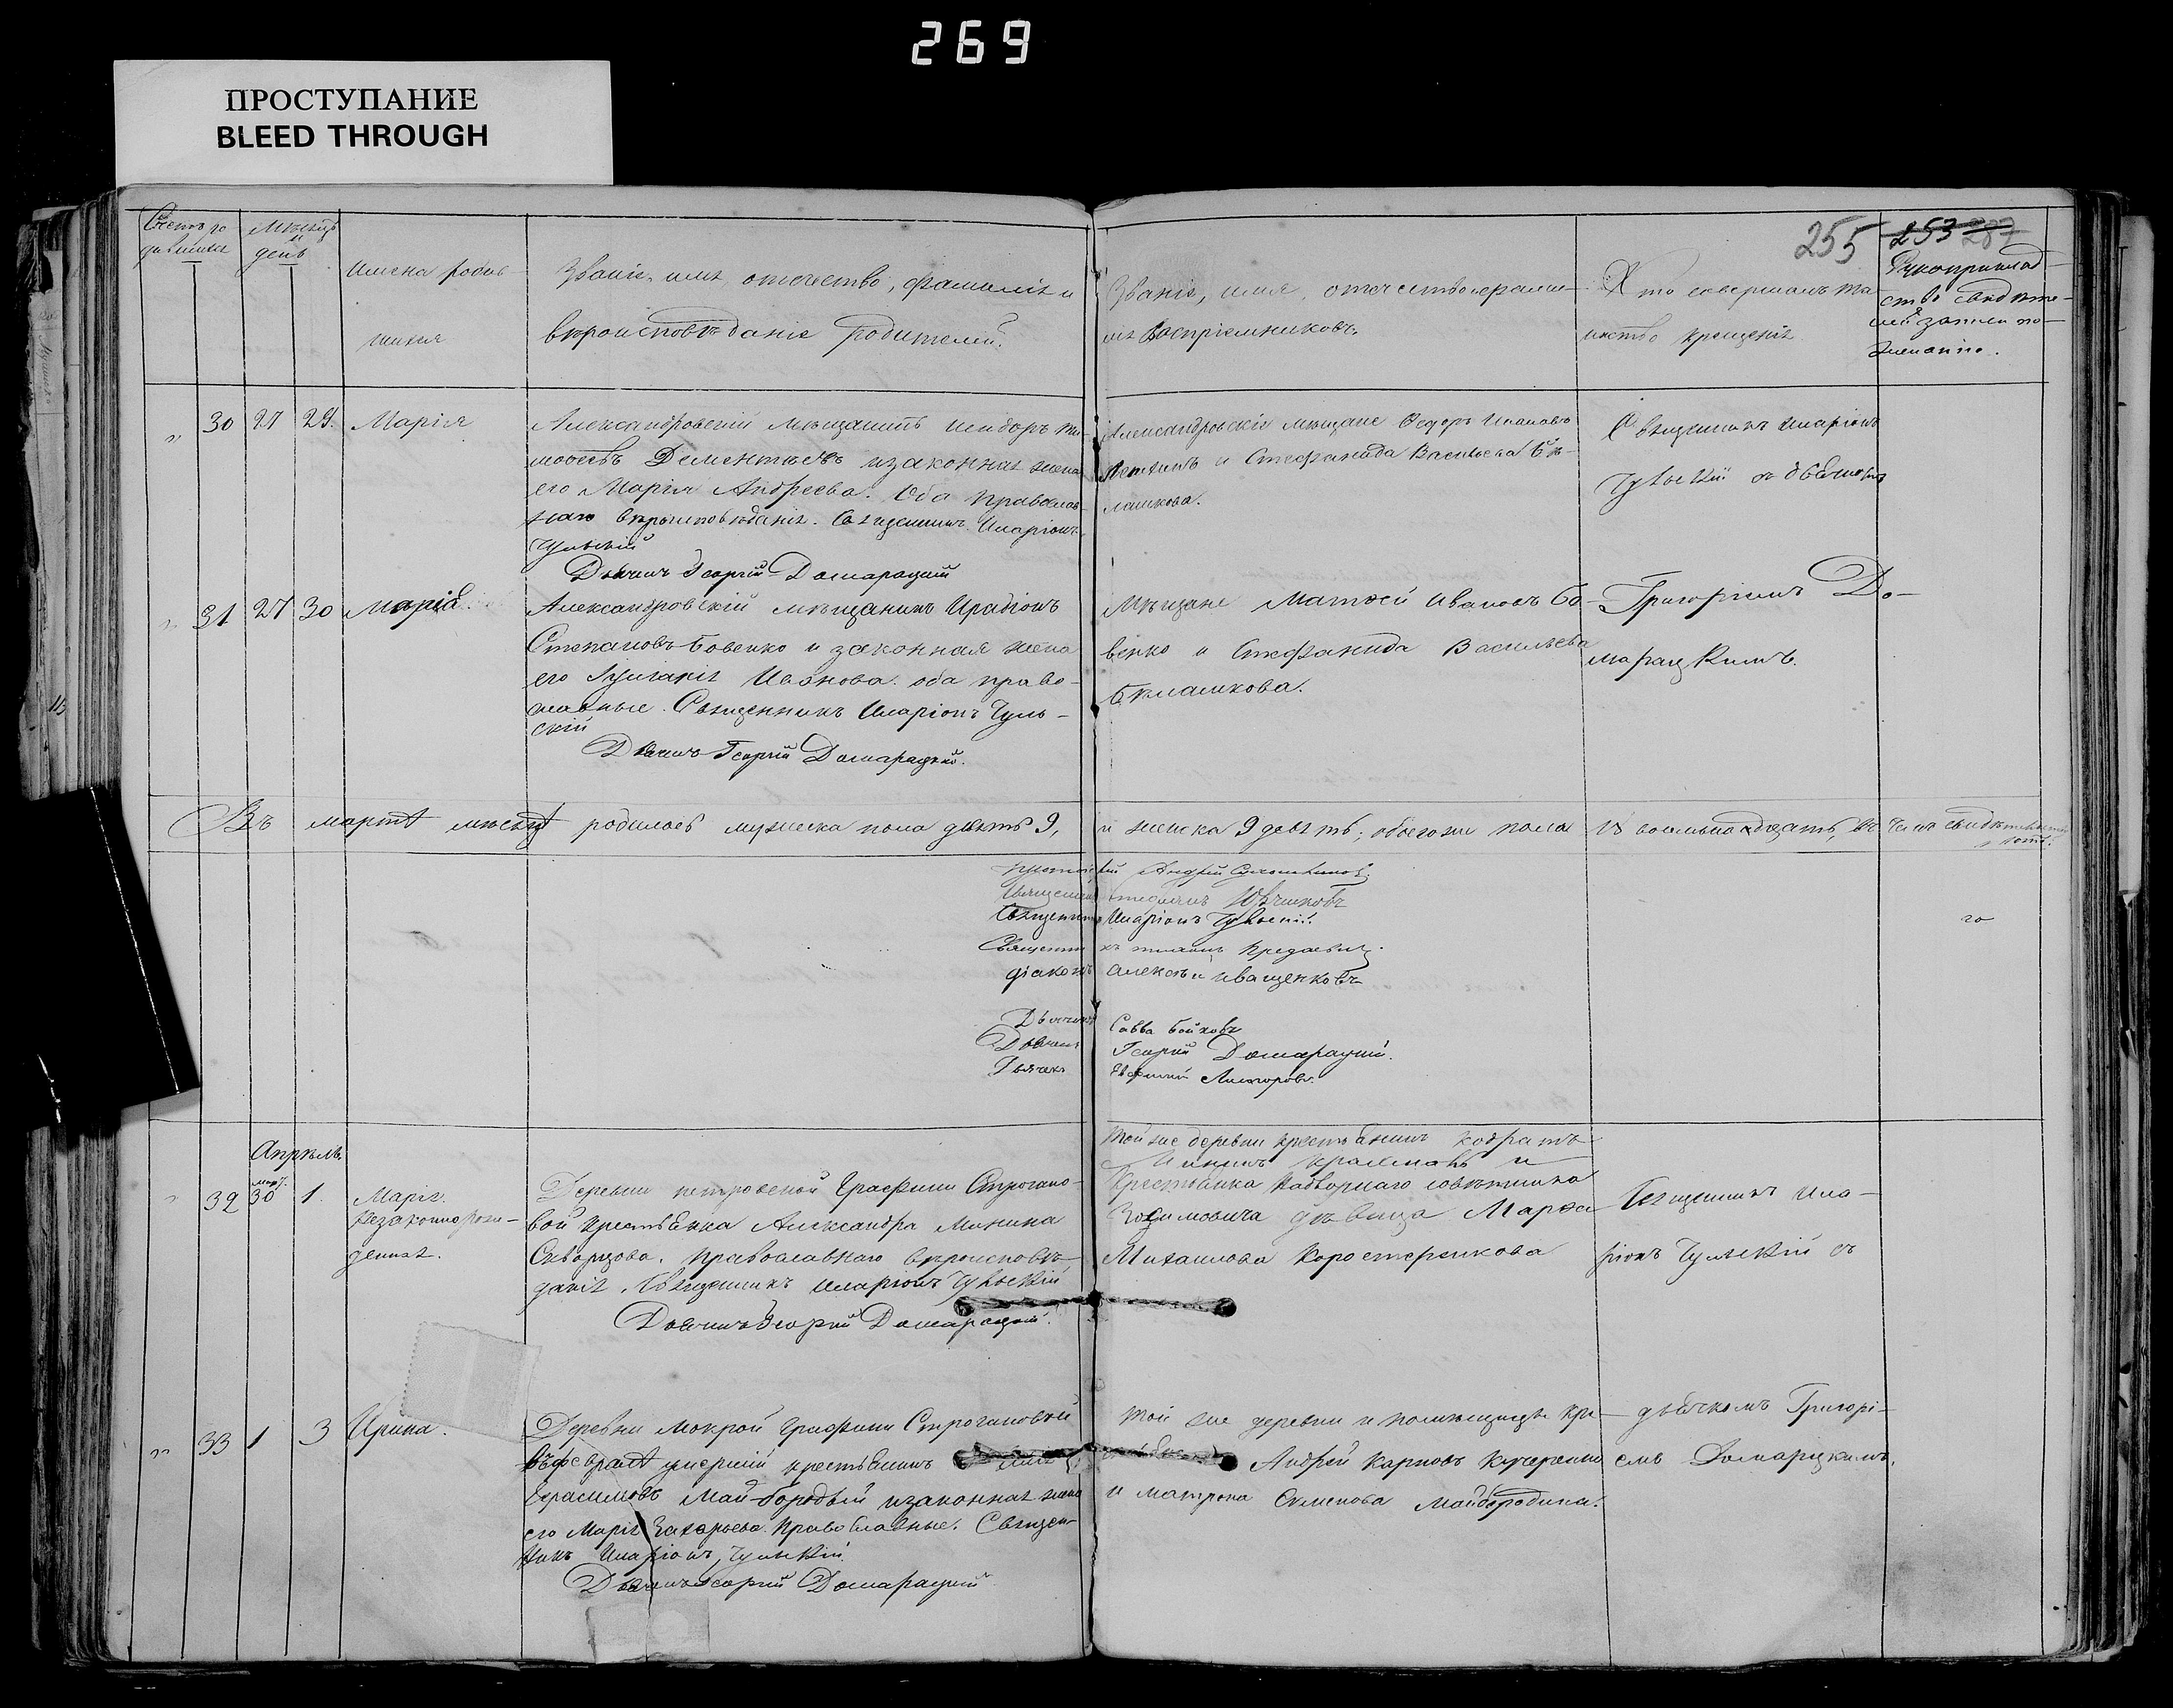 269
ПРОСТУПАНИЕ
BLEED THROUGH
255 253 287
Счетъ ро
дившихся
Мѣсяцъ
и
день
Имена родив
шихся
Званіе, имя, отечество, фамилія и
вѣроисповѣданіе родителей.
Званіе, имя, отечество и фами
лія воспріемниковъ.
Кто совершалъ та
инство крещенія
Рукоприклад
ство свидѣте-
лей записи по
желанію.
30 27 29. Марія
Александровскій мѣщанинъ Исидоръ Ти-
мофеевъ Дементьевъ и законная жена
его Марія Андреева. Оба православ-
наго вѣроисповѣданія. Священникъ Иларіонъ
Чульскій
Дьячекъ Георгій Домарацкій
Александровскіе мѣщане Федоръ Ивановъ
и Стефанида Васильева Бѣ-
лашкова.
Священникъ Иларіонъ
Чульскій съ дьячкомъ
31 27 30 Марія.
Александровскій мѣщанинъ Иродіонъ
Степановъ Бовенко и законная жена
его Гликерія Иванова. оба право-
славные. Священникъ Иларіонъ Чуль-
скій
Дьячекъ Георгій Домарацкій.
Мѣщане Матвей Ивановъ Бо-
венко и Стефанида Васильева
Бѣлашкова.
Григоріемъ До-
марацкимъ.
Въ мартѣ месяцѣ родилось мужеска пола девять 9, и женска 9 девять; обоего же пола 18 восьмнадцать, въ чемъ свидѣтельствуютъ.
Протоіерей Андрей
Священникъ Стефанъ
Священникъ Иларіонъ Чульскій.
Священникъ
діаконъ Алексѣй Иващенковъ
Дьячекъ Савва Бойковъ
Дьячекъ Георгій Домарацкій.
Дьячекъ
Апрѣль
32 март. 30 1. Марія.
Незаконнорож-
денная.
Деревни Петровской Графини Строгано-
вой крестьянка Александра Минина
Скворцова. православнаго вѣроисповѣ-
данія. Священникъ Иларіонъ Чульскій
Дьячекъ Георгій Домарацкій.
Той же деревни крестьянинъ Кодратъ
и
крестьянка Надворнаго совѣтника
Зосимовича дѣвица Марфа
Михаилова Коростеренкова
Священникъ Ила-
ріонъ Чульскій съ
33 1 3 Ирина.
Деревни Мокрой Графини Строгановой
въ февралѣ умершій крестьянинъ
Герасимовъ Май-бородый и законная жена
его Марія Захарьева. Православные. Священ-
никъ Иларіонъ Чульскій.
Дьячекъ Георгій Домарацкій
Той же деревни и помѣщицы кре-
Андрей Карповъ Кучеренко
и Матрона Семенова Майбородина.
дьячкомъ Григорі-
емъ Домарацкимъ.